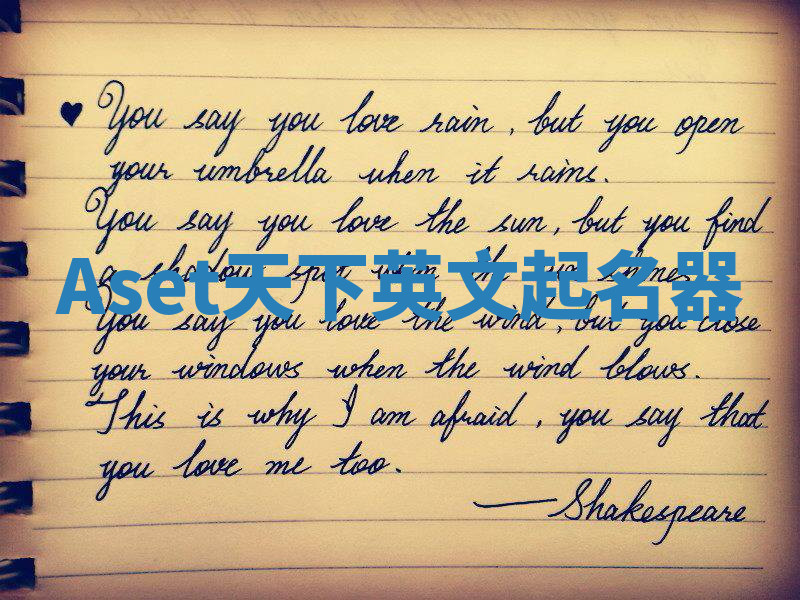 ♥ You say you love rain, but you open
your umbrella when it rains.
You say you love the sun, but you find
a shadow spot when the sun shines.
Aset天下英文起名器
You say you love the wind, but you close
your windows when the wind blows.
This is why I am afraid, you say that
you love me too.
—Shakespeare